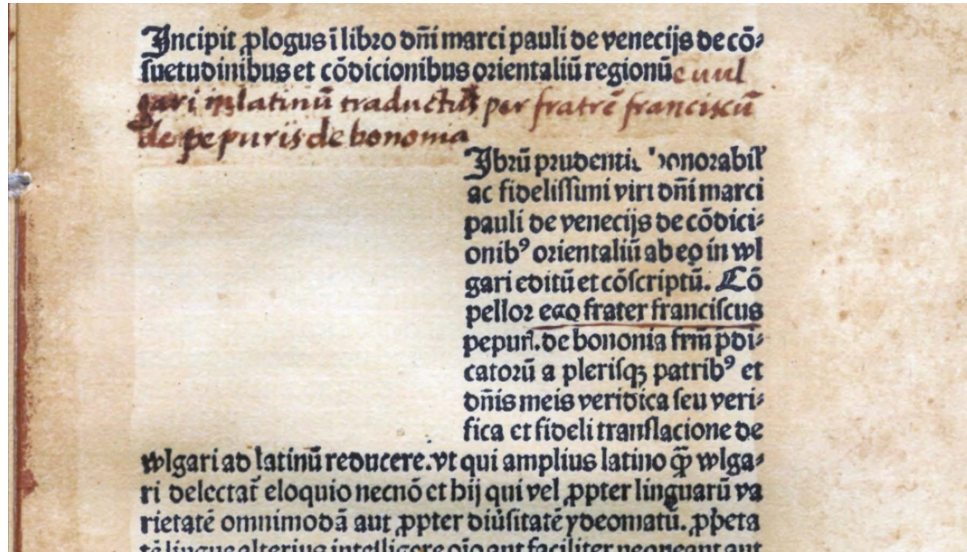 Incipit ꝓlogus ī libro dn̄i marci pauli de venecijs de cō⸗
suetudinibus et cōdicionibus orientaliū regionū e uul
gari in latinū traductus per fratrē franciscū
de pepuris de bononia
Ibrū prudentis honorabil̄
ac fidelissimi viri dn̄i marci
pauli de venecijs de cōdici⸗
onibꝰ orientaliū ab eo in wl
gari editū et cōscriptū. Cō
pellor ego frater franciscus
pepur̄. de bononia frm̄ p̄di⸗
catorū a plerisqꝫ patribꝰ et
dn̄is meis veridica seu veri⸗
fica et fideli translacione de
wlgari ad latinū reducere. vt qui amplius latino qꝫ̄ wlga⸗
ri delectat̄ eloquio necnō et hij qui vel ꝓpter linguarū va
rietatē omnimodā aut ꝓpter diūsitatē ydeomatū. ꝓpheta
tē lingue alterius intelligere oīo aut faciliter nequeant aut